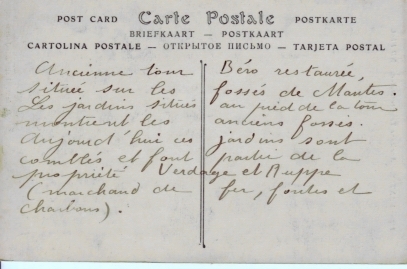 POST CARD Carte Postale POSTKARTE
BRIEFKAART — POSTKAART
CARTOLINA POSTALE — ОТКРЫТОЕ ПИСЬМО — TARJETA POSTAL
Ancienne tour Béro restaurée,
située sur les fossés de Mantes.
Les jardins situés au pied de la tour
montrent les anciens fossés.
Aujourd'hui ces jardins sont
comblés et font partie de la
propriété Verdage et Ruppe
(marchand de fer, fontes et
charbons).